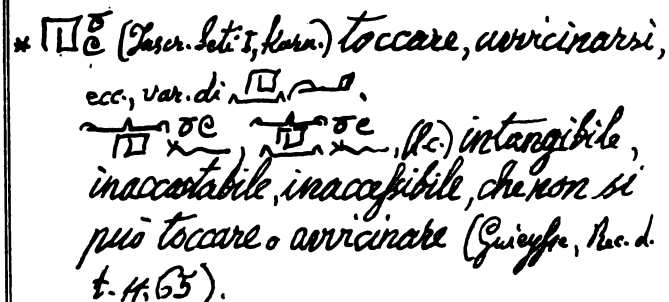 * (Inscr. Seti I, Karn.) toccare, avvicinarsi,
ecc., var. di
, (l.c.) intangibile,
inaccostabile, inaccessibile, che non si
può toccare o avvicinare (Guieysse, Rec. d.
t. 65).